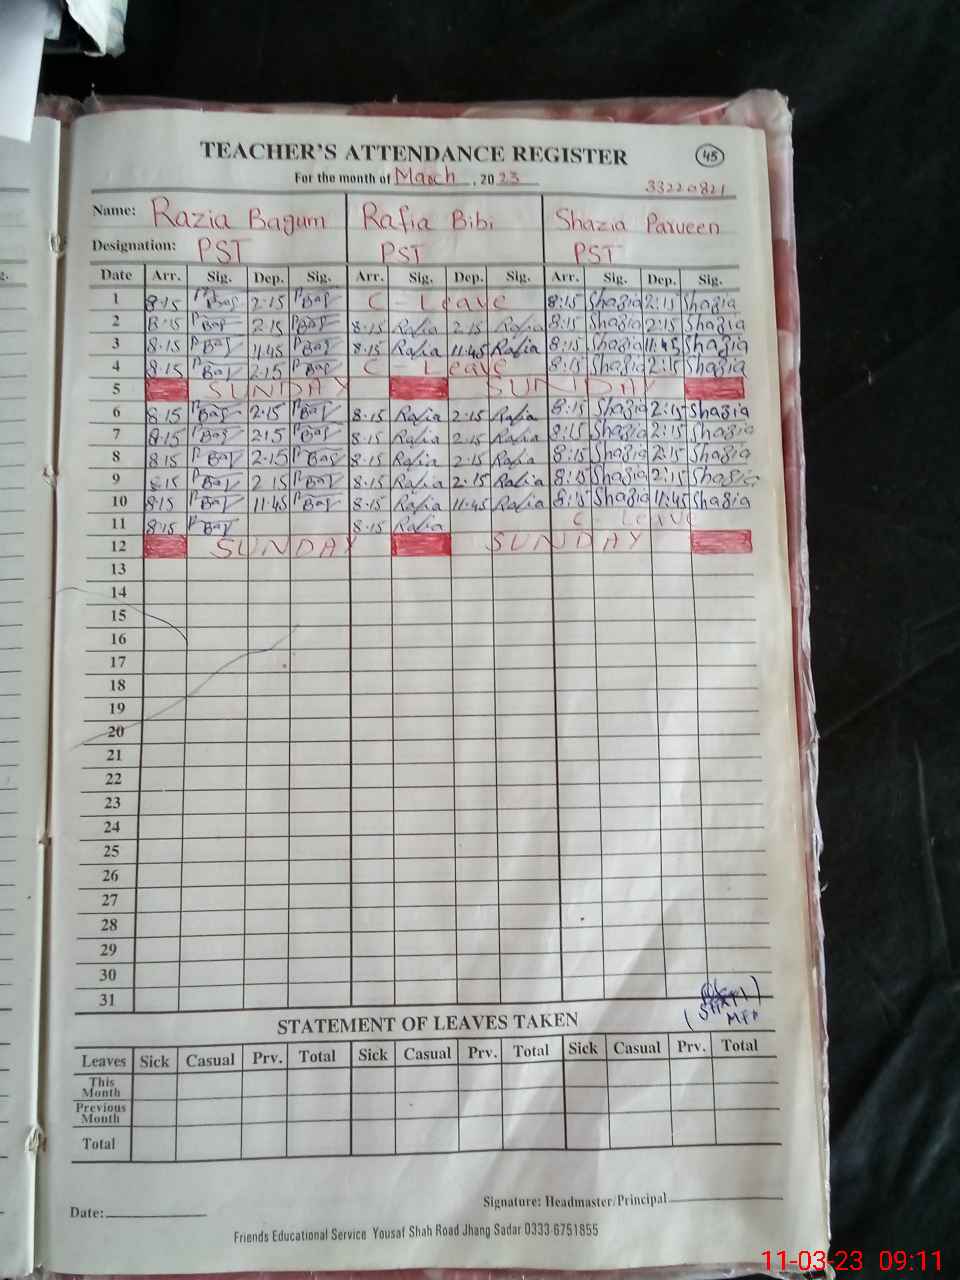 TEACHER'S ATTENDANCE REGISTER 45
For the month of March, 2023 33220821
Name: Razia Bagum Rafia Bibi Shazia Parveen
Designation: PST PST PST
Date Arr. Sig. Dep. Sig. Arr. Sig. Dep. Sig. Arr. Sig. Dep. Sig.
1 8:15 Bag 2:15 Bag C - Leave 8:15 Shazia 2:15 Shazia
2 8:15 Bag 2:15 Bag 8:15 Rafia 2:15 Rafia 8:15 Shazia 2:15 Shazia
3 8:15 Bag 11:45 Bag 8:15 Rafia 11:45 Rafia 8:15 Shazia 11:45 Shazia
4 8:15 Bag 2:15 Bag C - Leave 8:15 Shazia 2:15 Shazia
5 SUNDAY SUNDAY
6 8:15 Bag 2:15 Bag 8:15 Rafia 2:15 Rafia 8:15 Shazia 2:15 Shazia
7 8:15 Bag 2:15 Bag 8:15 Rafia 2:15 Rafia 8:15 Shazia 2:15 Shazia
8 8:15 Bag 2:15 Bag 8:15 Rafia 2:15 Rafia 8:15 Shazia 2:15 Shazia
9 8:15 Bag 2:15 Bag 8:15 Rafia 2:15 Rafia 8:15 Shazia 2:15 Shazia
10 8:15 Bag 11:45 Bag 8:15 Rafia 11:45 Rafia 8:15 Shazia 11:45 Shazia
11 8:15 Bag 8:15 Rafia C - Leave
12 SUNDAY SUNDAY
13
14
15
16
17
18
19
20
21
22
23
24
25
26
27
28
29
30
31
STATEMENT OF LEAVES TAKEN
Leaves Sick Casual Prv. Total Sick Casual Prv. Total Sick Casual Prv. Total
This
Month
Previous
Month
Total
Date: Signature: Headmaster/Principal
Friends Educational Service Yousaf Shah Road Jhang Sadar 0333-6751855
11-03-23 09:11